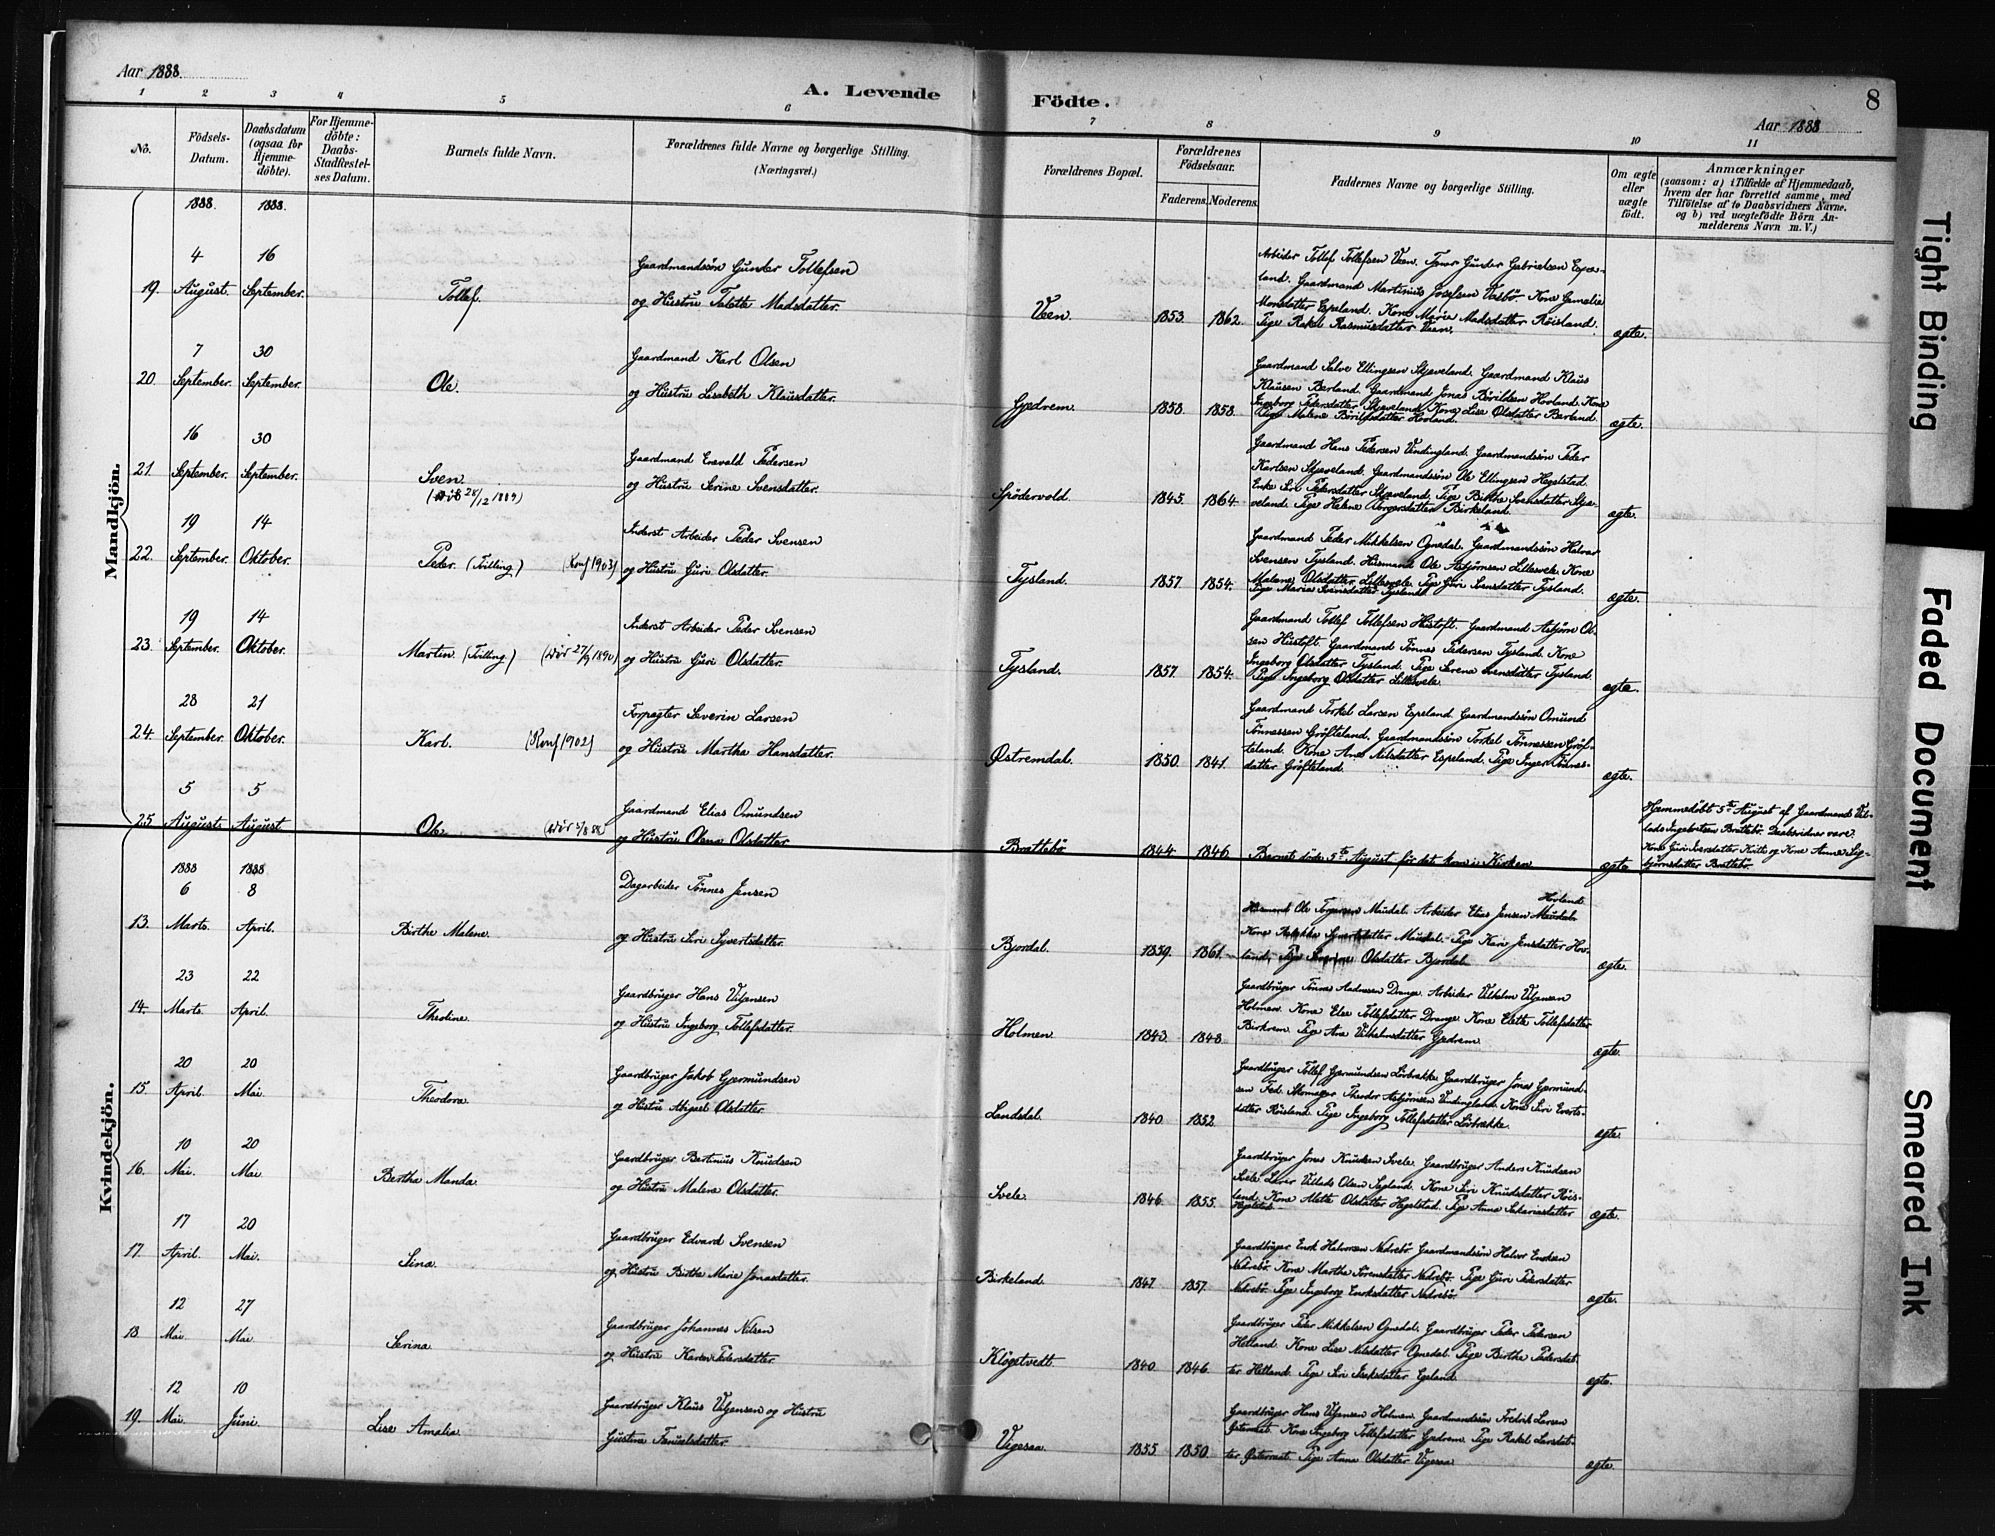 Aar 1888.
A. Levende Födte.
8
Aar 1888
1 2 3 4 5 6 7 8 9 10 11
No.
Födsels-Datum.
Daabsdatum (ogsaa for Hjemme-döbte).
For Hjemme-döbte: Daabs-Stadfæstel-ses Datum.
Barnets fulde Navn.
Forældrenes fulde Navne og borgerlige Stilling.
(Næringsvei.)
Forældrenes Bopæl.
Forældrenes Födselsaar.
Faderens. Moderens.
Faddernes Navne og borgerlige Stilling.
Om ægte eller uægte födt.
Anmærkninger
(saasom: a) i Tilfælde af Hjemmedaab,
hvem der har forrettet samme, med
Tilföielse af to Daabsvidners Navne.
og b) ved uægtefödte Börn An-
melderens Navn m. V.)
Mandkjön.
1888. 1888.
4 16
19. August. September. Tollef.
Gaardmandssön Gunder Tollefsen
og Hustru Talette Madsdatter.
Veen. 1853. 1862.
Arbeider Tollef Tollefsen Veen. Gunder Gabrielsen Espe-
land. Gaardmand Martinius Josefsen Vasbö. Kone
Monsdatter Espeland. Kone Marie Madsdatter Röisland.
Pige Rakel Rasmusdatter Veen.
ægte.
7 30
20. September. September. Ole.
Gaardmand Karl Olsen
og Hustru Lisabeth Klausdatter.
Gjedrem. 1858. 1858.
Gaardmand Salve Ellingsen Skjæveland. Gaardmand Klaus
Klausen Berland. Gaardmand Jonas Börildsen Hovland. Kone
Ingeborg Pedersdatter Skjæveland. Kone Lise Olsdatter Berland.
Pige Malene Börildsdatter Hovland.
ægte.
16 30
21 September. September. Sven.
(död 28/12 1889)
Gaardmand Enevald Pedersen
og Hustru Serine Svensdatter.
Spödervold. 1845. 1864.
Gaardmand Hans Pedersen Vindingland. Gaardmandssön Peder
Karlsen Skjæveland. Gaardmandssön Ole Ellingsen Hegelstad.
Enke Siri Pedersdatter Skjæveland. Pige Birthe Svensdatter Skjæ-
veland. Pige Helene Aorgersdatter Birkeland.
ægte.
19 14
22. September. Oktober. Peder. (Tvilling) (Konf 1903)
Inderst Arbeider Peder Svensen
og Hustru Guri Olsdatter.
Tysland. 1857 1854.
Gaardmand Peder Mikkelsen Ognedal. Gaardmandssön Halvor
Svensen Tysland. Husmand Ole Asbjörnsen Lillesvele. Kone
Malene Olsdatter Lillesvele. Pige Guri Svensdatter Tysland.
Pige Maria Svensdatter Tysland.
ægte.
19 14
23. September. Oktober. Martin. (Tvilling) (Död 27/9 1890)
Inderst Arbeider Peder Svensen
og Hustru Guri Olsdatter.
Tysland. 1857. 1854.
Gaardmand Tollef Tollefsen Hustoft. Gaardmand Asbjörn Ol-
sen Hustoft. Gaardmand Tönnes Pedersen Tysland. Kone
Ingeborg Olsdatter Tysland. Pige Serena Svensdatter Tysland.
Pige Ingeborg Olsdatter Lillesvele.
ægte.
28 21
24. September. Oktober. Karl. (Konf 1902)
Forpagter Severin Larsen
og Hustru Martha Hansdatter.
Östremdal. 1850. 1841.
Gaardmand Torkel Larsen Espeland. Gaardmandssön Omund
Tönnessen Gröfteland. Gaardmandssön Torkel Tönnessen Gröf-
teland. Kone Ane Nilsdatter Espeland. Pige Inger Tönnes-
datter Gröfteland.
ægte.
5 5
25 August. August. Ole. (död 5/8 88)
Gaardmand Elias Omundsen
og Hustru Olena Olsdatter
Brattebö 1844 1846
Barnet döde 5te August för det kom i Kirken
ægte
Hjemmedöbt 5te August af Gaardmand Vil-
lads Ingebretsen Brattebö. Daabsvidner vare:
Kone Guri Iversdatter Kvite og Kone Anne Sig-
björnsdatter Brattebö.
Kvindekjön.
1888 1888
6 8
13. Marts. April. Birthe Malene.
Dagarbeider Tönnes Jensen
og Hustru Siri Syvertsdatter.
Bjordal. 1859. 1861.
Hovland.
Husmand Ole Torgersen Mausdal. Arbeider Elias Jensen Mausdal.
Kone Rebekka Syvertsdatter Mausdal. Pige Kari Jensdatter Hov-
land. Pige Severine Olsdatter Bjordal.
ægte.
23 22
14. Marts. April. Theoline.
Gaardbruger Hans Uljensen
og Hustru Ingeborg Tollefsdatter.
Holmen. 1843. 1848
Gaardbruger Tönnes Aadnesen Drange. Arbeider Vilhelm Uljensen
Holmen. Kone Else Tollefsdatter Drange. Kone Elette Tollefsdatter
Birkrem. Pige Ane Vilhelmsdatter Gjedrem.
ægte.
20 20
15. April. Mai. Theodora.
Gaardbruger Jakob Gjermundsen
og Hustru Abigael Olsdatter.
Landsdal. 1840. 1852
Gaardbruger Tollef Gjermundsen Lövbrække. Gaardbruger Jonas Gjermund-
sen Fed. Skomager Theodor Asbjörnsen Vindingland. Kone Siri Everts-
datter Röisland. Pige Ingeborg Tollefsdatter Lövbrække.
ægte.
10 20
16. Mai. Mai. Bertha Manda.
Gaardbruger Bertinius Knudsen
og Hustru Malene Olsdatter.
Svele. 1846. 1855.
Gaardbruger Jonas Knudsen Svele. Gaardbruger Anders Knudsen
Svele. Lærer Villads Olsen Sagland. Kone Siri Knudsdatter Röis-
land. Kone Alette Olsdatter Hegelstad. Pige Anne Sakariasdatter
Hegelstad.
ægte.
17 20
17. April. Mai. Sina.
Gaardbruger Edvard Svensen
og Hustru Birthe Marie Jonasdatter.
Birkeland. 1847. 1857.
Gaardbruger Enok Halvorsen Nedrebö. Gaardmandssön Halvor Enoksen
Nedrebö. Kone Martha Sörensdatter Nedrebö. Pige Guri Pedersdatter
Nedrebö. Pige Ingeborg Enoksdatter Nedrebö.
ægte.
12 27
18. Mai. Mai. Serina.
Gaardbruger Johannes Nilsen
og Hustru Karen Pedersdatter.
Klögetvedt. 1840. 1846.
Gaardbruger Peder Mikkelsen Ognedal. Gaardbruger Peder Pedersen
Hetland. Kone Lise Nilsdatter Ognedal. Pige Birthe Pedersdat-
ter Hetland. Pige Siri Isaksdatter Egeland.
ægte.
12 10
19. Mai. Juni Lise Amalia.
Gaardbruger Klaus Uljensen og Hustru
Gustine Fanuelsdatter.
Vigesaa. 1855. 1850.
Gaardbruger Hans Uljensen Holmen. Gaardmandssön Fredrik Larsen
Kone Ingeborg Tollefsdatter Gjedrem. Pige Rakel Larsdat-
ter Pige Anna Olsdatter Vigesaa.
ægte.
Tight Binding
Faded Document
Smeared Ink